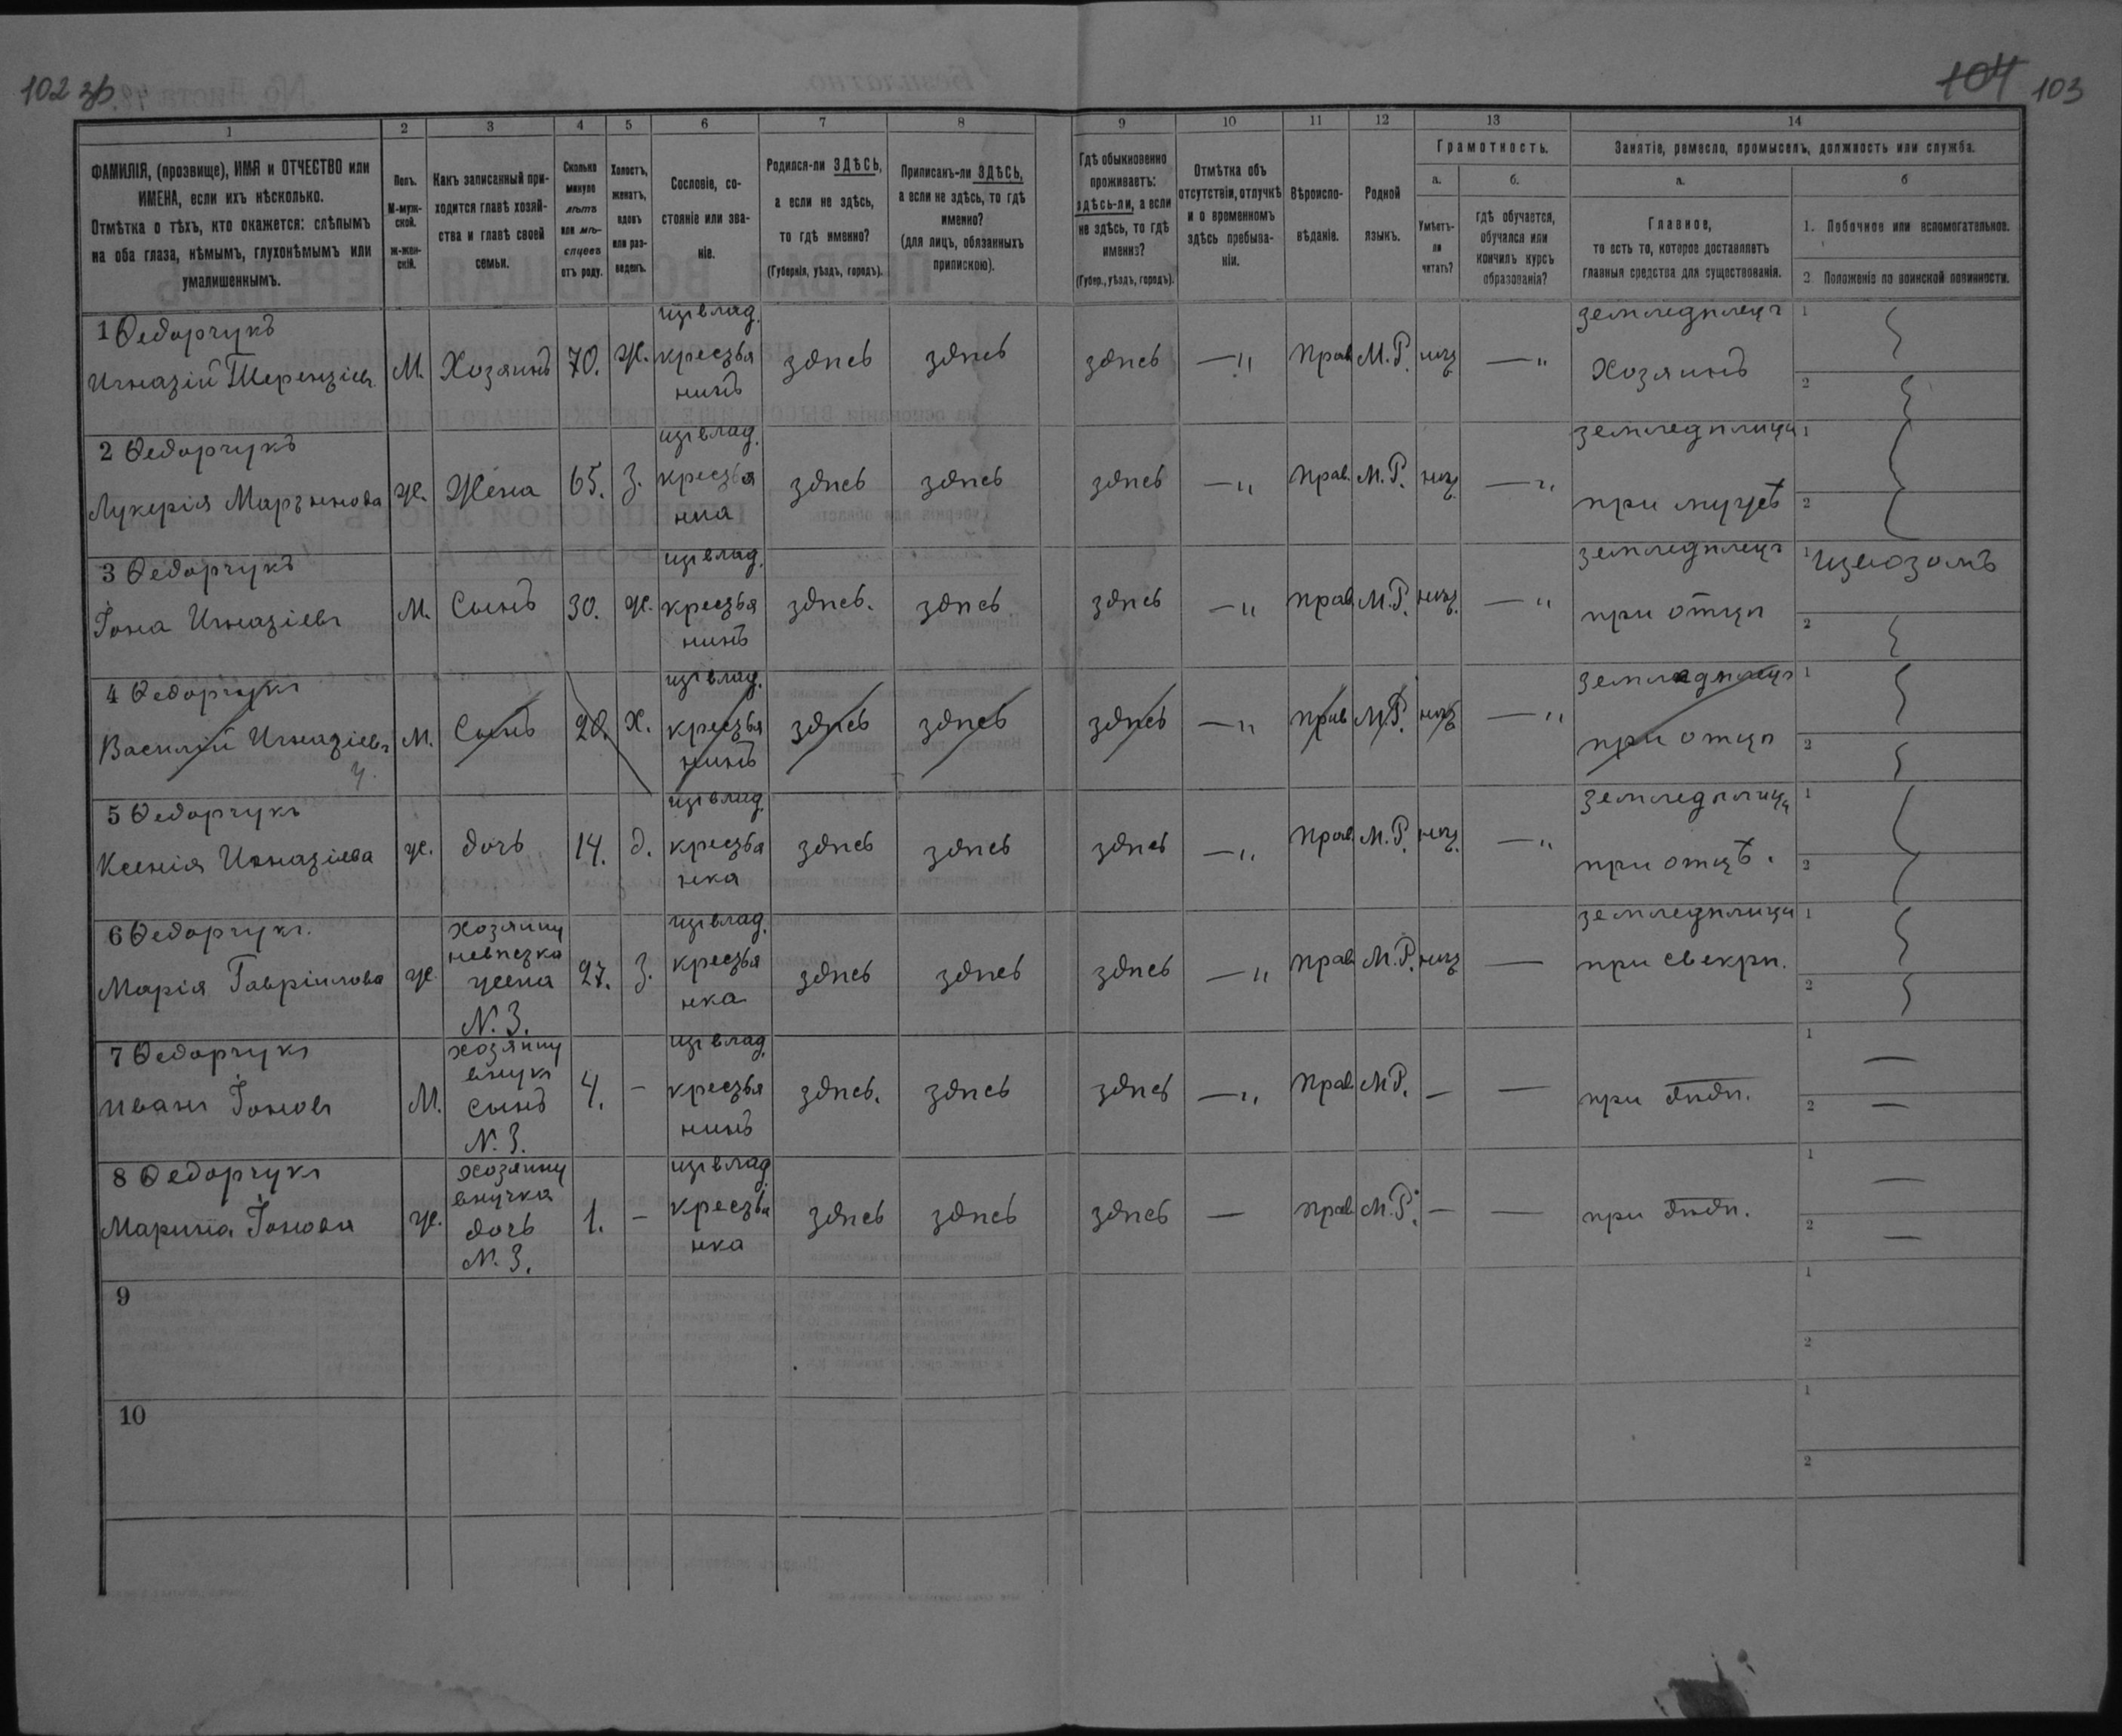 102 зв.
104 103
1 2 3 4 5 6 7 8 9 10 11 12 13 14
ФАМИЛІЯ, (прозвище), ИМЯ и ОТЧЕСТВО или
ИМЕНА, если ихъ нѣсколько.
Отмѣтка о тѣхъ, кто окажется: слѣпымъ
на оба глаза, нѣмымъ, глухонѣмымъ или
умалишеннымъ.
Полъ.
М-муж-
ской.
Ж-жен-
скій.
Какъ записанный при-
ходится главѣ хозяй-
ства и главѣ своей
семьи.
Сколько
минуло
лѣтъ
или мѣ-
сяцевъ
отъ роду.
Холостъ,
женатъ,
вдовъ
или раз-
веденъ.
Сословіе, со-
стояніе или зва-
ніе.
Родился-ли ЗДѢСЬ,
а если не здѣсь,
то гдѣ именно?
(Губернія, уѣздъ, городъ).
Приписанъ-ли ЗДѢСЬ,
а если не здѣсь, то гдѣ
именно?
(для лицъ, обязанныхъ
припискою).
Гдѣ обыкновенно
проживаетъ:
здѣсь-ли, а если
не здѣсь, то гдѣ
именно?
(Губер., уѣздъ, городъ).
Отмѣтка объ
отсутствіи, отлучкѣ
и о временномъ
здѣсь пребыва-
ніи.
Вѣроиспо-
вѣданіе.
Родной
языкъ.
Грамотность.
а.
Умѣетъ-
ли
читать?
б.
гдѣ обучается,
обучался или
кончилъ курсъ
образованія?
Занятіе, ремесло, промыселъ, должность или служба.
а.
Главное,
то есть то, которое доставляетъ
главныя средства для существованія.
б
1. Побочное или вспомогательное.
2. Положеніе по воинской повинности.
1 Ѳедорчукъ
Игназій Терензіев
М. Хозяинъ 70. Ж.
из влад.
кресзья
нинъ
здѣсь здѣсь здѣсь —"
Прав М.Р. нѣт —"
земледѣлец
Хозяинъ
1
2
2 Ѳедорчукъ
Лукерія
Ж. Жена 65. З.
из влад.
кресзья
нка
здѣсь здѣсь здѣсь —"
Прав. М.Р. нѣт —"
земледѣлица
при мужѣ
1
2
3 Ѳедорчукъ
Іона Игназіевъ
М. Сынъ 30. Ж.
из влад.
кресзья
нинъ
здѣсь. здѣсь здѣсь —"
Прав М.Р. нѣт —"
земледѣлец
при отцѣ
1
2
4 Ѳедорчукъ
Василій Игназіевъ
М. Сынъ 20. Х.
из влад.
кресзья
нинъ
здѣсь здѣсь здѣсь —"
Прав М.Р. нѣт —"
земледѣлец
при отцѣ
1
2
5 Ѳедорчукъ
Ксенія Игназіева
ж. дочь 14. д.
из влад.
кресзья
нка
здѣсь здѣсь здѣсь —"
Прав. М.Р. нѣт —"
земледѣлица
при отцѣ.
1
2
6 Ѳедорчукъ.
Марія Гавріилова
ж
хозяину
невѣзка
жена
N. 3.
27. З.
из влад.
кресзья
нка
здѣсь здѣсь здѣсь —"
Прав М.Р. нѣт —
земледѣлица
при свекрѣ.
1
2
7 Ѳедорчукъ
Иванъ Іоновъ
М.
хозяину
внукъ
сынъ
N. 3.
4. –
из влад.
кресзья
нинъ
здѣсь. здѣсь здѣсь —"
Прав. М.Р. — —
при дѣдѣ.
1 —
2 —
8 Ѳедорчукъ
Марина Іонова
ж.
хозяину
внучка
дочь
N. 3.
1. –
из влад
кресзья
нка
здѣсь здѣсь здѣсь —
Прав М.Р. — —
при дѣдѣ.
1 —
2 —
9
1
2
10
1
2